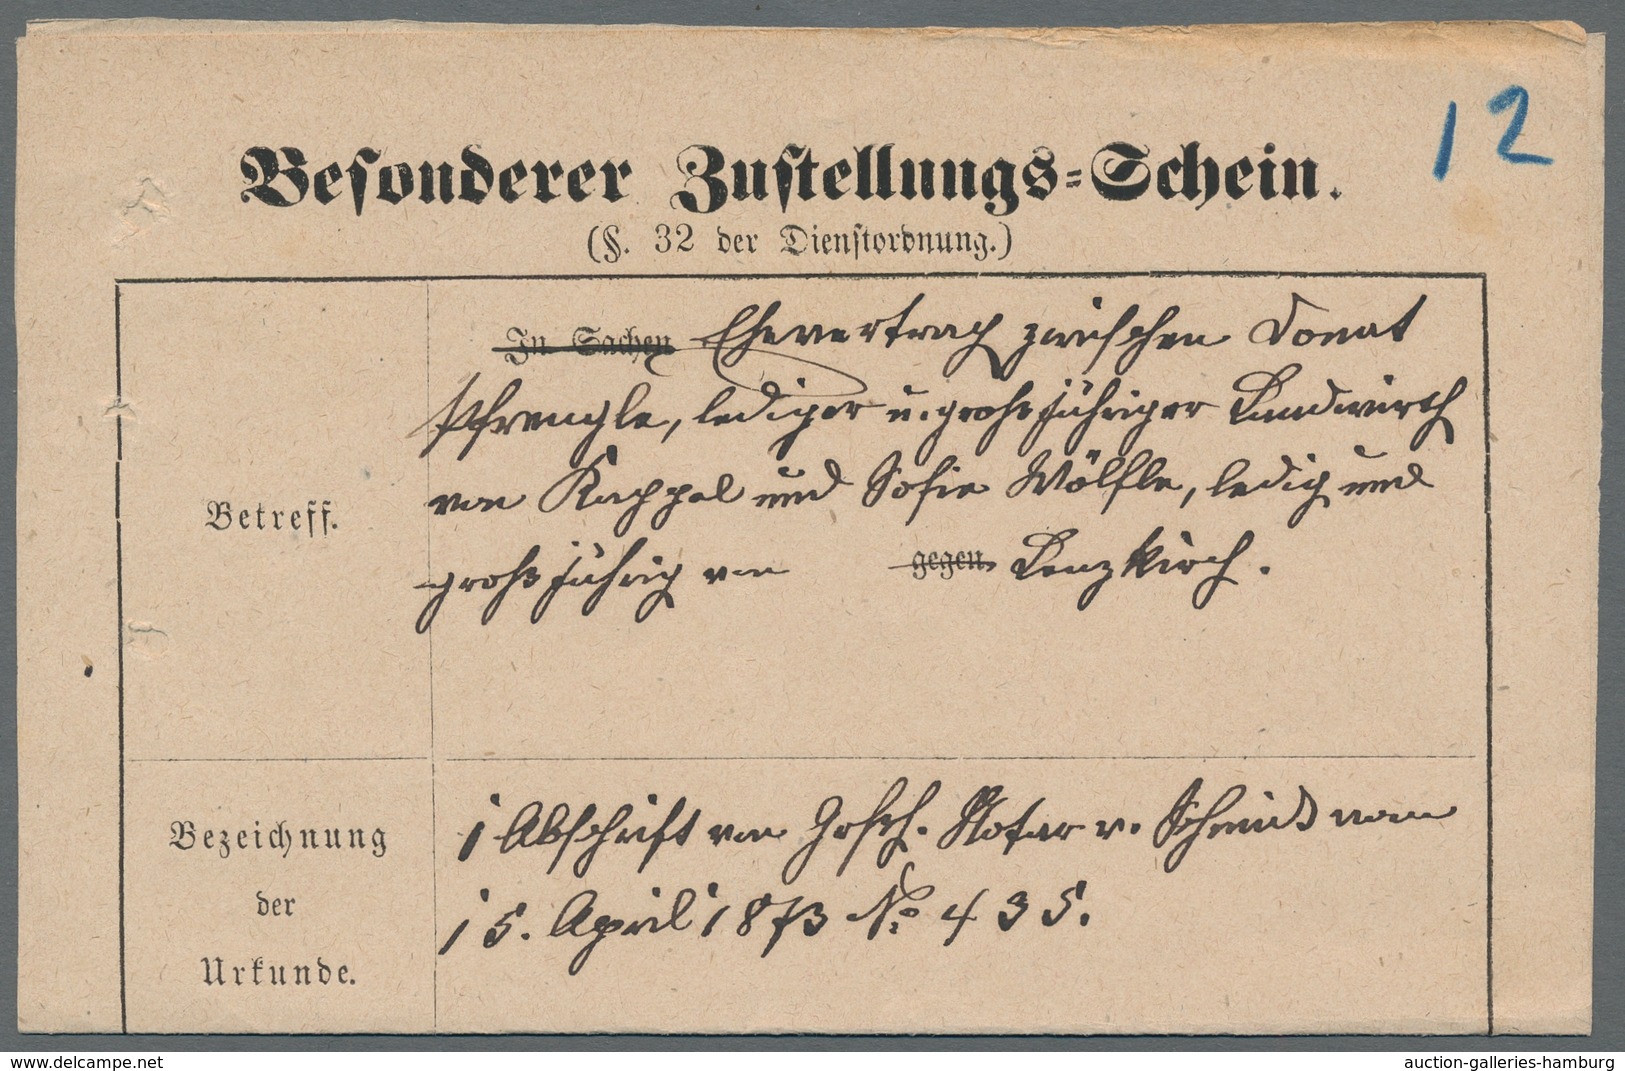 12
Besonderer Zustellungs-Schein.
(§. 32 der Dienstordnung.)
In Sachen Ehevertrag zwischen Donat
Pfrengle, lediger u. großjähriger Landwirth
von Kappel und Sofie Wölfle, ledig und
großjährig von gegen Lenzkirch.
Betreff.
1 Abschrift von Gesch. Notar v. Schmid vom
15. April 1873 No 435.
Bezeichnung
der
Urkunde.
www.delcampe.net
auction-galleries-hamburg